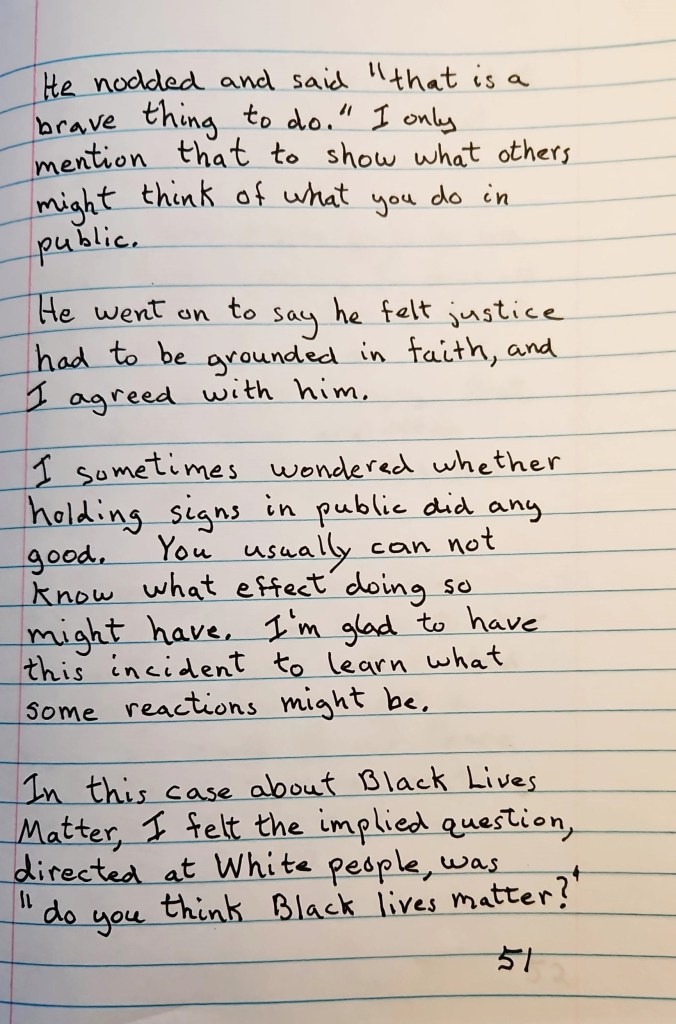 He nodded and said "that is a
brave thing to do." I only
mention that to show what others
might think of what you do in
public.
He went on to say he felt justice
had to be grounded in faith, and
I agreed with him.
I sometimes wondered whether
holding signs in public did any
good. You usually can not
know what effect doing so
might have. I'm glad to have
this incident to learn what
some reactions might be.
In this case about Black Lives
Matter, I felt the implied question,
directed at White people, was
"do you think Black lives matter?"
51